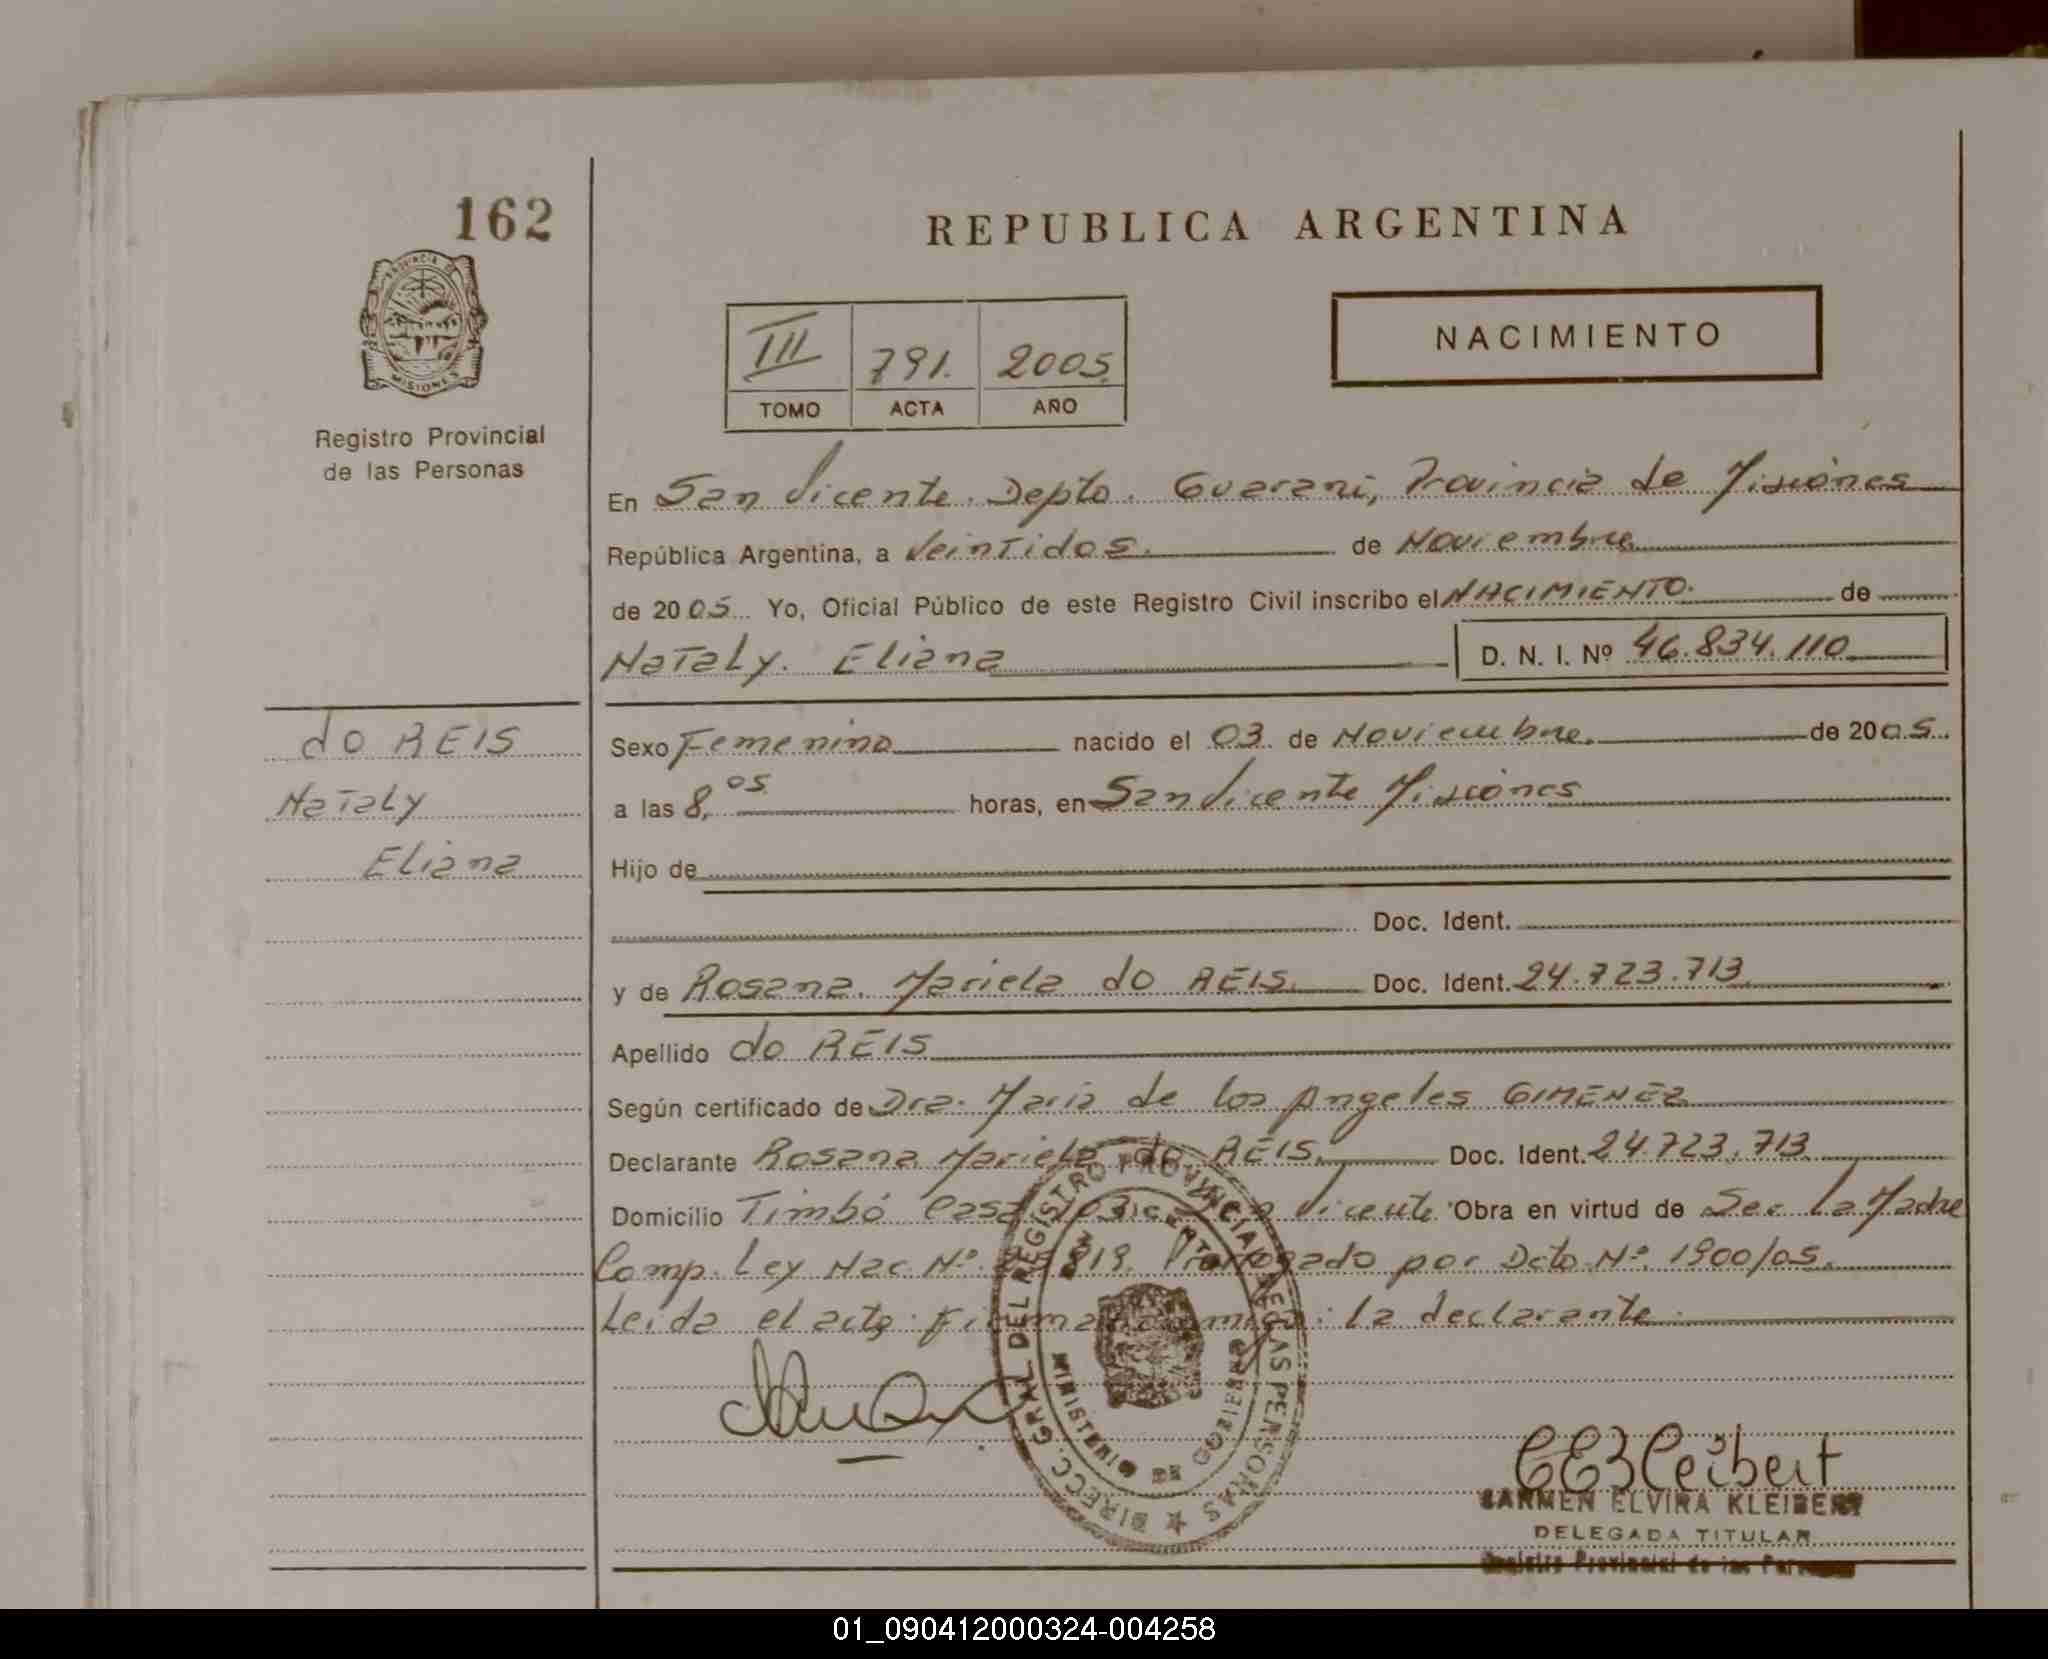 162
REPUBLICA ARGENTINA
PROVINCIA DE
MISIONES
Registro Provincial
de las Personas
III 791. 2005.
TOMO ACTA AÑO
NACIMIENTO
En San Vicente. Depto. Guarani, Provincia de Misiones
República Argentina, a Veintidos. de Noviembre
de 2005 Yo, Oficial Público de este Registro Civil inscribo el NACIMIENTO. de
Nataly. Eliana D. N. I. Nº 46.834.110
do REIS
Nataly
Eliana
Sexo Femenino nacido el 03 de Noviembre. de 2005.
a las 8,05 horas, en San Vicente Misiones
Hijo de
Doc. Ident.
y de Rosana. Mariela do REIS. Doc. Ident. 24.723.713
Apellido do REIS
Según certificado de Dra. Maria de los Angeles GIMENEZ
Declarante Rosana Mariela do REIS. Doc. Ident. 24.723.713
Domicilio Timbó Casa Vicente Obra en virtud de Sec la Madre
Comp. Ley Nac Nº. 819. Prorrogado por Dcto Nº. 1900/05.
Leida el acta. Firma conmigo: la declarante.
DIRECC. GRAL DEL REGISTRO PROVINCIAL DE LAS PERSONAS
MINISTERIO DE GOBIERNO
CEKleibert
CARMEN ELVIRA KLEIBERT
DELEGADA TITULAR
Registro Provincial de las Personas
01_090412000324-004258